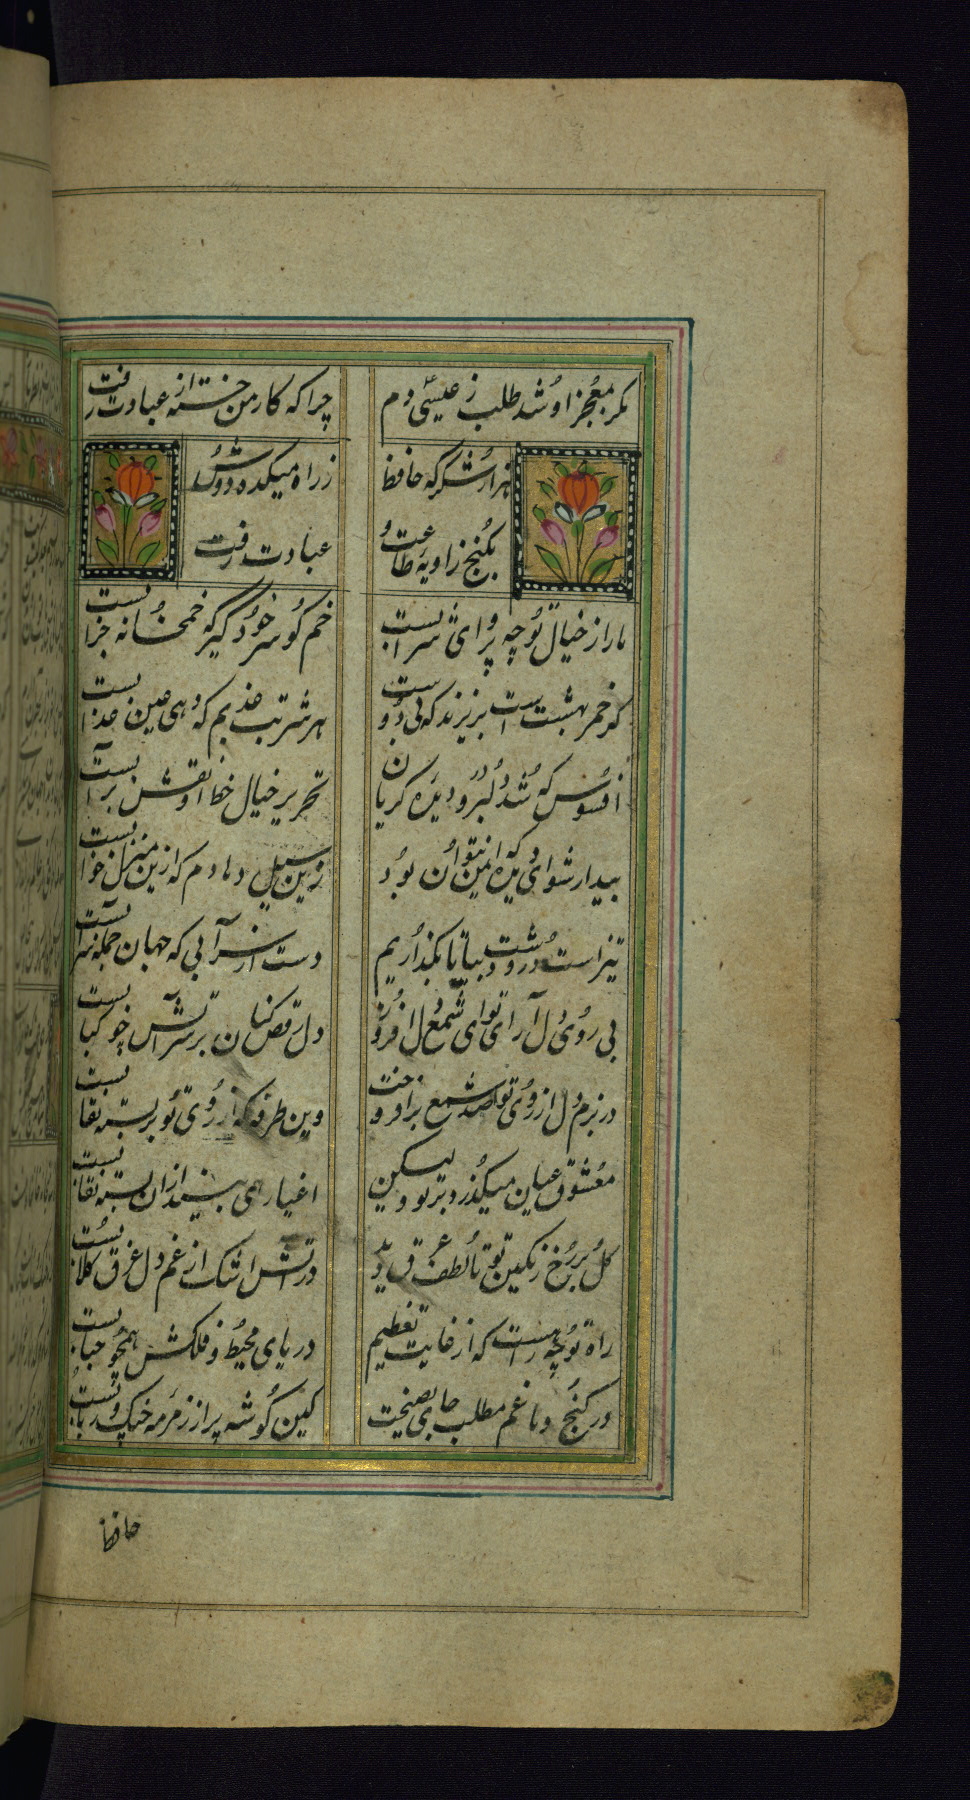 مکر معجز او شد طلب ز عیسی دم
چرا که کار من خسته از عبادت رفت
هزار شکر که حافظ
ز راه میکده دوش
بکنج زاویه طاعت
عبادت رفت
ما را ز خیال تو چه پروای شرابست
خم کو سر خود گیر که خمخانه خرابست
کر خمر بهشت است بریزند که بی دوست
هر شربت عذبم که دهی عین عذابست
افسوس که شد دلبر و در دیده کریان
تحریر خیال خط او نقش بر آبست
بیدار شو ای دیده که ایمن نتوان بود
زین سیل دمادم که ازین منزل خوابست
دست از سر آبی که جهان جمله سرابست
بی روی دل آرای تو ای شمع دل افروز
دل رقص کنان بر سر آتش چو کبابست
در بزم دل از روی تو صد شمع برافروخت
وین طرفه که از روی تو بر بسته نقابست
معشوق عیان میکذرد بر تو ولیکن
اغیار همی بیند از آن بسته نقابست
کل بر رخ رنکین تو تا لطف عرق دید
در آتش اشک از غم دل غرق کلابست
راه تو چه راهست که از غایت تعظیم
دریای محیط فلکش همچو حبابست
در کنج دماغم مطلب جای نصیحت
کین کوشه پر از زمزمه چنک و ربابست
حافظ